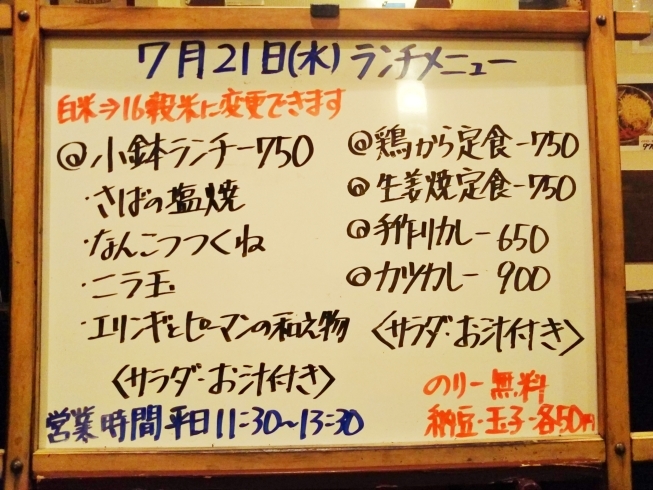 7月21日(水) ランチメニュー
白米⇒16穀米に変更できます
@小鉢ランチー750
・さばの塩焼
・なんこつつくね
・ニラ玉
・エリンギとピーマンの和え物
〈サラダ・お汁付き〉
@鶏から定食-750
@生姜焼定食-750
@手作りカレー650
@カツカレー900
〈サラダ・お汁付き〉
のりー無料
納豆・玉子-各50円
営業時間平日11:30〜13:30